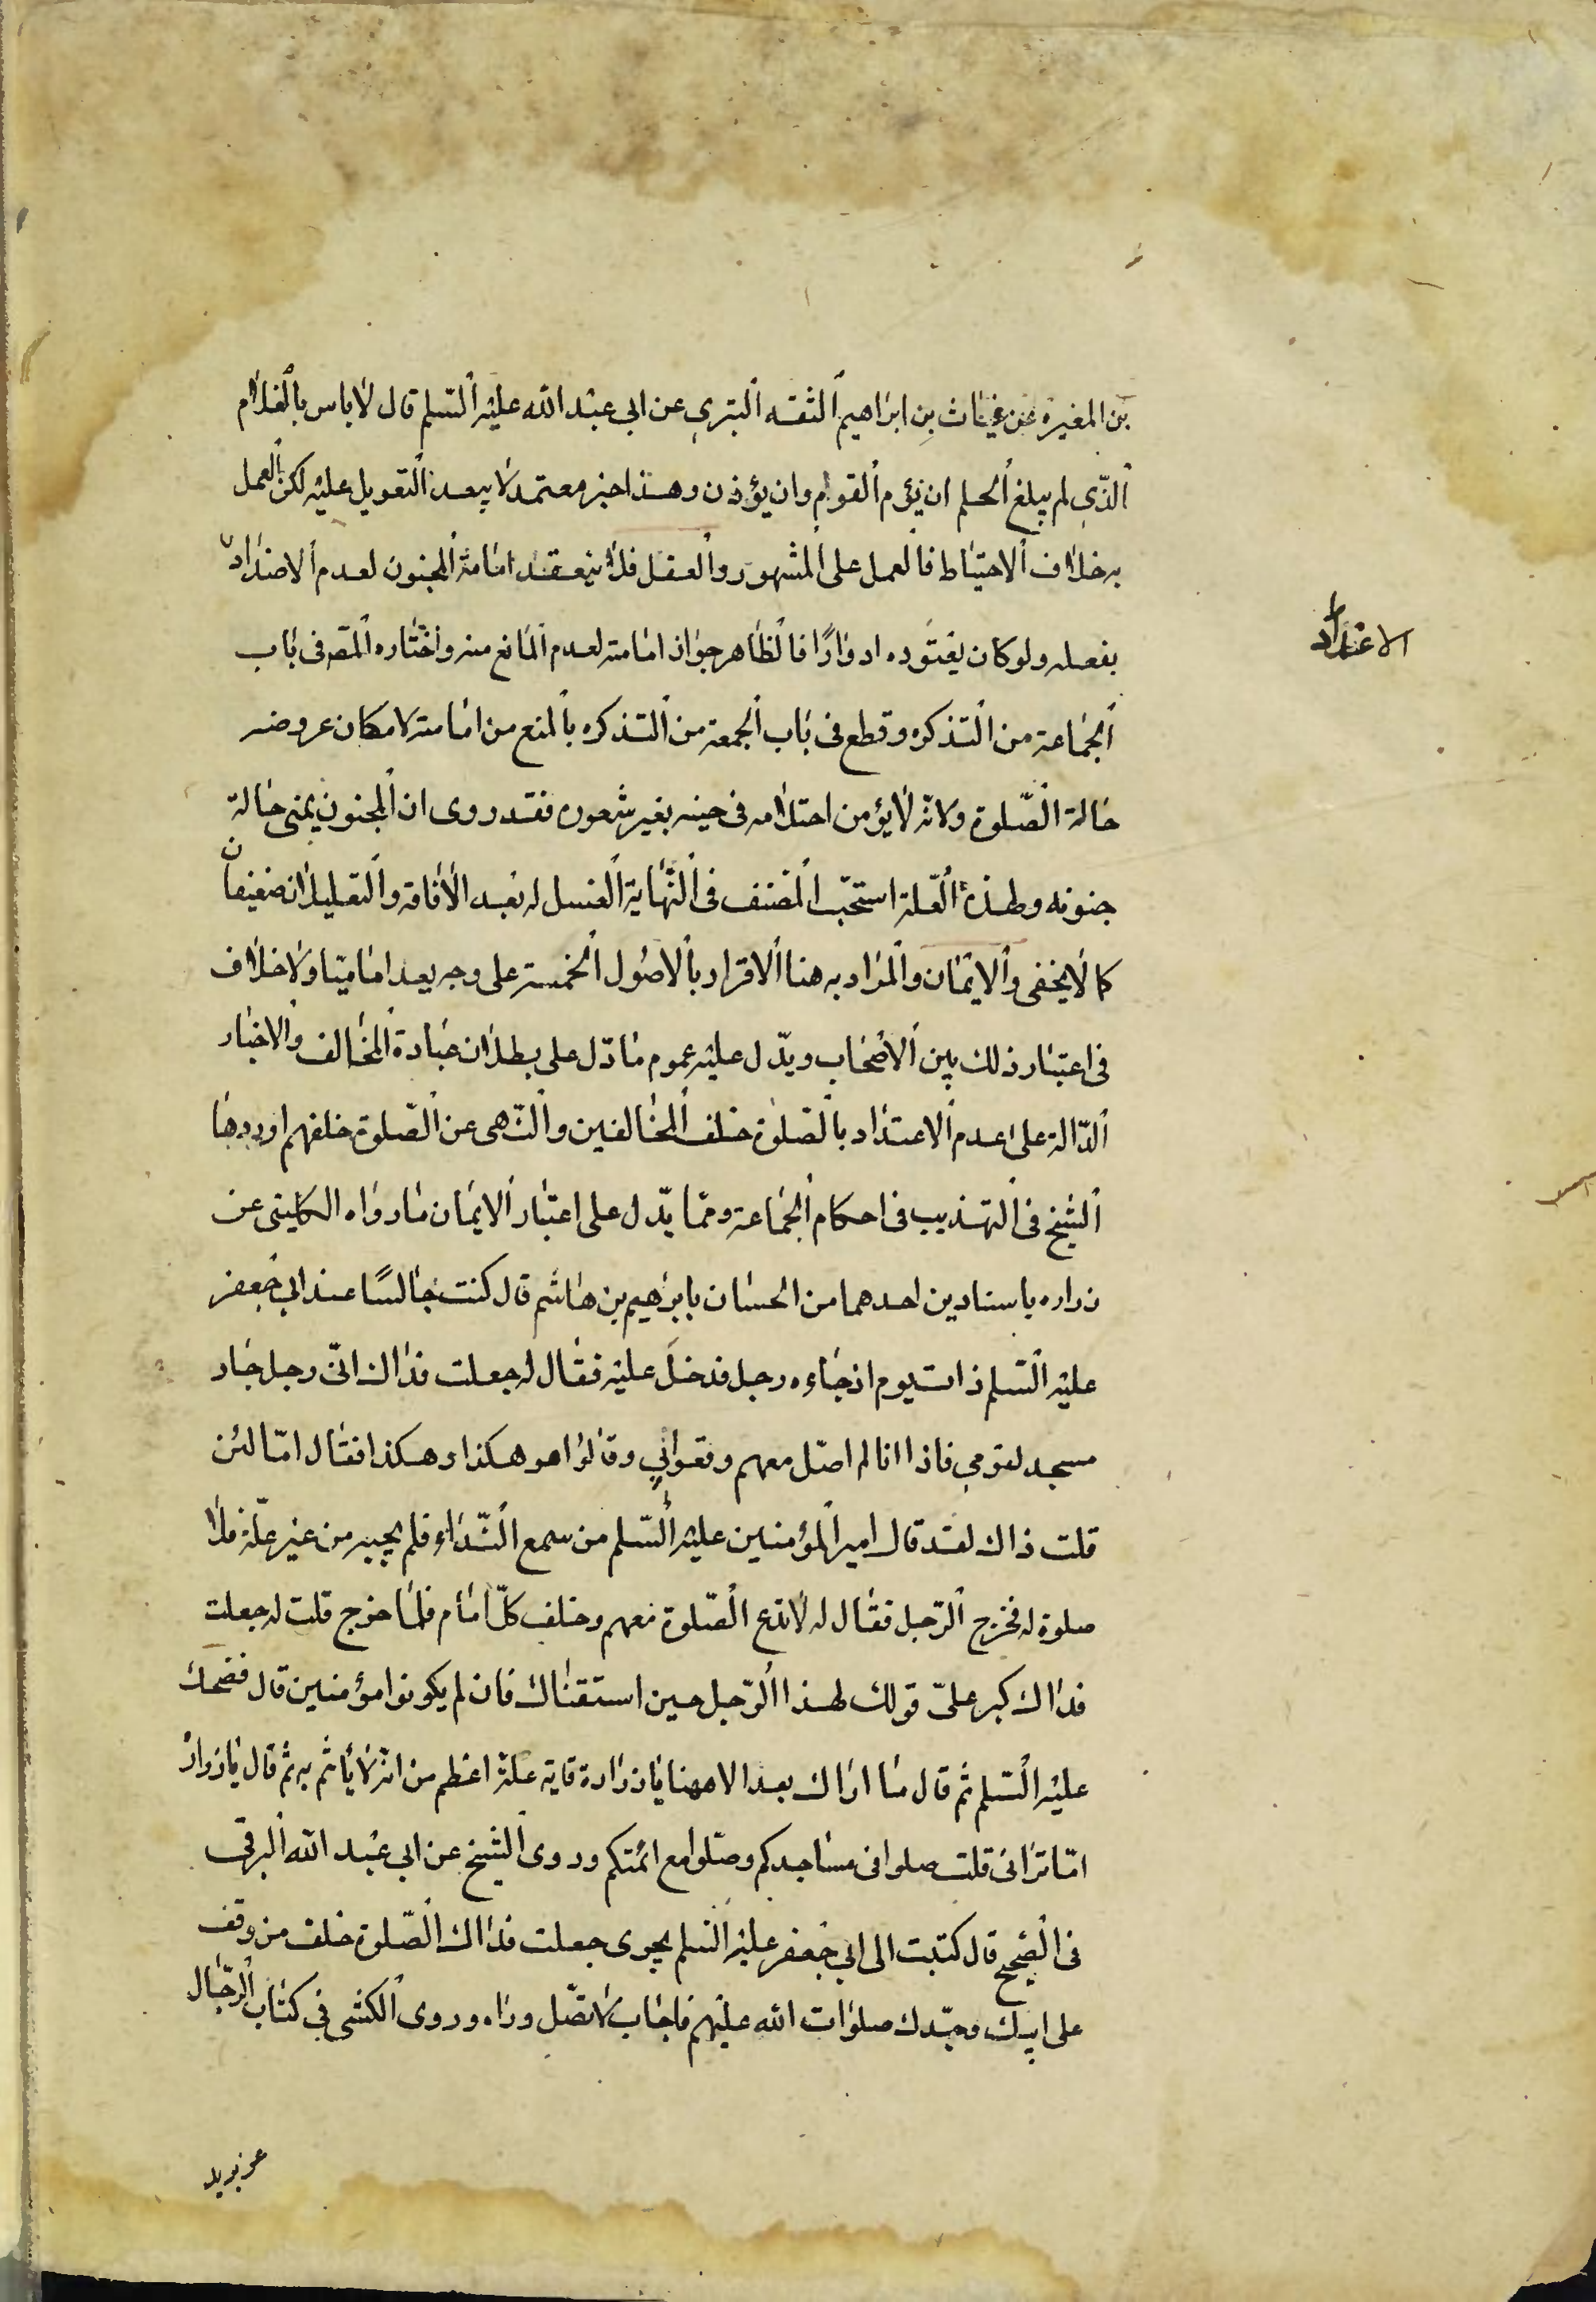 بن المغيرة عن غياث بن ابراهيم الثقه البتري عن ابي عبد الله عليه السّلم قال لا باس بالغلام
الذّي لم يبلغ الحلم ان يؤم القوم وان يؤذن وهذا خبر معتمد لا يبعد التعويل عليه لكن العمل
به خلاف الاحتياط فالعمل على المشهور والعقل فلا ينعقد امامة المجنون لعدم الاضداد
الاعتداد
بفعله ولو كان يعتوره ادوارًا فالظاهر جواز امامته لعدم المانع منه واختاره المصّ فى باب
الجماعة من التذكره وقطع فى باب الجمعة من التذكره بالمنع من امامته لامكان عروضه
حالة الصّلوة ولانّه لا يؤمن احتلامه فى حينه بغير شعوره فقد روى ان المجنون يمنى حالة
جنونه ولهذه العّلة استحبّ المصنف فى النّهاية الغسل له بعد الافاقه والتعليلان ضعيفان
كما لا يخفى والايمان والمراد به هنا الاقرار بالاصول الخمسة على وجه يعد اماميا ولا خلاف
فى اعتبار ذلك بين الاصحاب ويدّل عليه عموم ما دّل على بطلان عبادة المخالف والاخبار
الدّالة على عدم الاعتداد بالصّلوة خلف المخالفين والنّهى عن الصّلوة خلفهم اوردها
الشيخ فى التهذيب فى احكام الجماعة وممّا يدّل على اعتبار الايمان ما رواه الكلينى عن
زراره باسنادين احدهما من الحسان بابرٰهيم بن هاشم قال كنت جالسًا عند ابي جعفر
عليه السّلم ذات يوم اذ جاءه رجل فدخل عليه فقال له جعلت فداك انّى رجل جار
مسجد لقومي فاذا انا لم اصّل معهم وقعوا في وقالوا هو هكذا وهكذا فقال امّا لئن
قلت ذاك لقد قال امير المؤمنين عليه السّلم من سمع النّداء فلم يجبه من غير علّة فلا
صلوة له فخرج الرّجل فقال له لا تدع الصّلوة معهم وخلف كلّ امام فلمّا خرج قلت له جعلت
فداك كبر علىّ قولك لهذا الرّجل حين استفتاك فان لم يكونوا مؤمنين قال فضحك
عليه السّلم ثم قال ما اراك بعد الا ههنا يا زرارة فاية علة اعظم من انه لا يأتم به ثم قال يا زرارة
امّا ترانى قلت صلوا فى مساجدكم وصّلوا مع ائمتكم وروى الشيخ عن ابي عبد الله البرقي
فى الصّحيح قال كتبت الى ابي جعفر عليه السّلم يجوى جعلت فداك الصّلوة خلف من وقف
على ابيك وجدّك صلوات الله عليهم فاجاب لا تصّل وراه وروى الكشى في كتاب الرّجال
عن يزيد